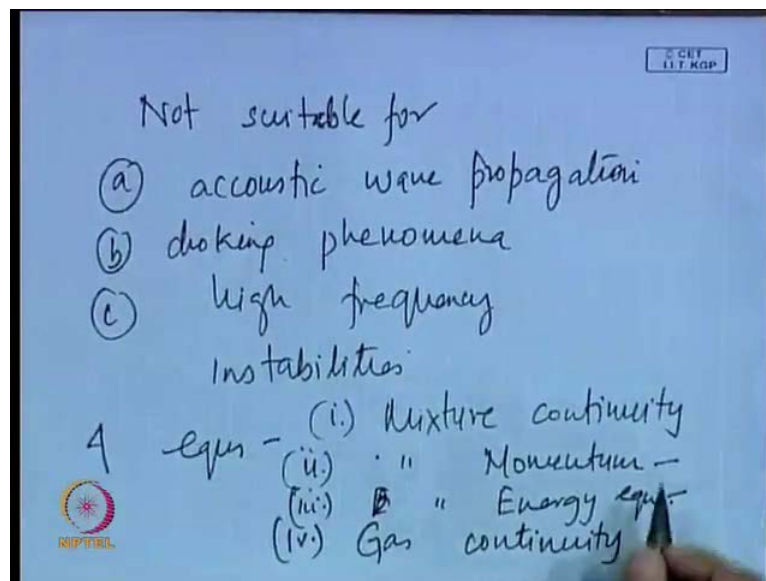 © CET
I.I.T. KGP
Not suitable for
(a) accoustic wave propagation
(b) choking phenomena
(c) high frequency
Instabilities
4 equs - (i.) Mixture continuity
(ii.) " Momentum -
(iii.) " Energy equ -
(iv.) Gas continuity
NPTEL